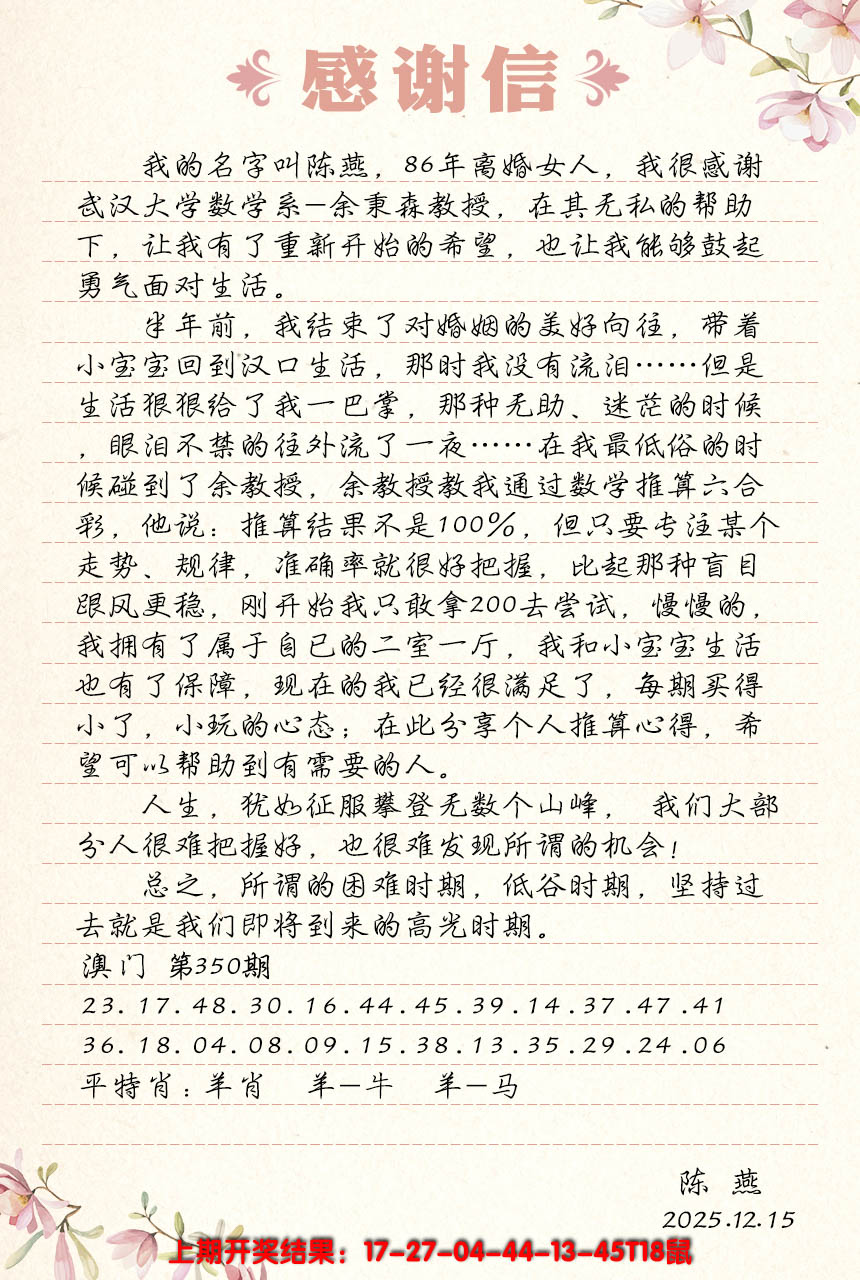 感谢信
我的名字叫陈燕，86年离婚女人，我很感谢
武汉大学数学系—余秉森教授，在其无私的帮助
下，让我有了重新开始的希望，也让我能够鼓起
勇气面对生活。
半年前，我结束了对婚姻的美好向往，带着
小宝宝回到汉口生活，那时我没有流泪……但是
生活狠狠给了我一巴掌，那种无助、迷茫的时候
，眼泪不禁的往外流了一夜……在我最低俗的时
候碰到了余教授，余教授教我通过数学推算六合
彩，他说：推算结果不是100%，但只要专注某个
走势、规律，准确率就很好把握，比起那种盲目
跟风更稳，刚开始我只敢拿200去尝试，慢慢的，
我拥有了属于自已的二室一厅，我和小宝宝生活
也有了保障，现在的我已经很满足了，每期买得
小了，小玩的心态；在此分享个人推算心得，希
望可以帮助到有需要的人。
人生，犹如征服攀登无数个山峰， 我们大部
分人很难把握好，也很难发现所谓的机会！
总之，所谓的困难时期，低谷时期，坚持过
去就是我们即将到来的高光时期。
澳门 第350期
23.17.48.30.16.44.45.39.14.37.47.41
36.18.04.08.09.15.38.13.35.29.24.06
平特肖：羊肖 羊—牛 羊—马
陈 燕
2025.12.15
上期开奖结果：17-27-04-44-13-45T18鼠